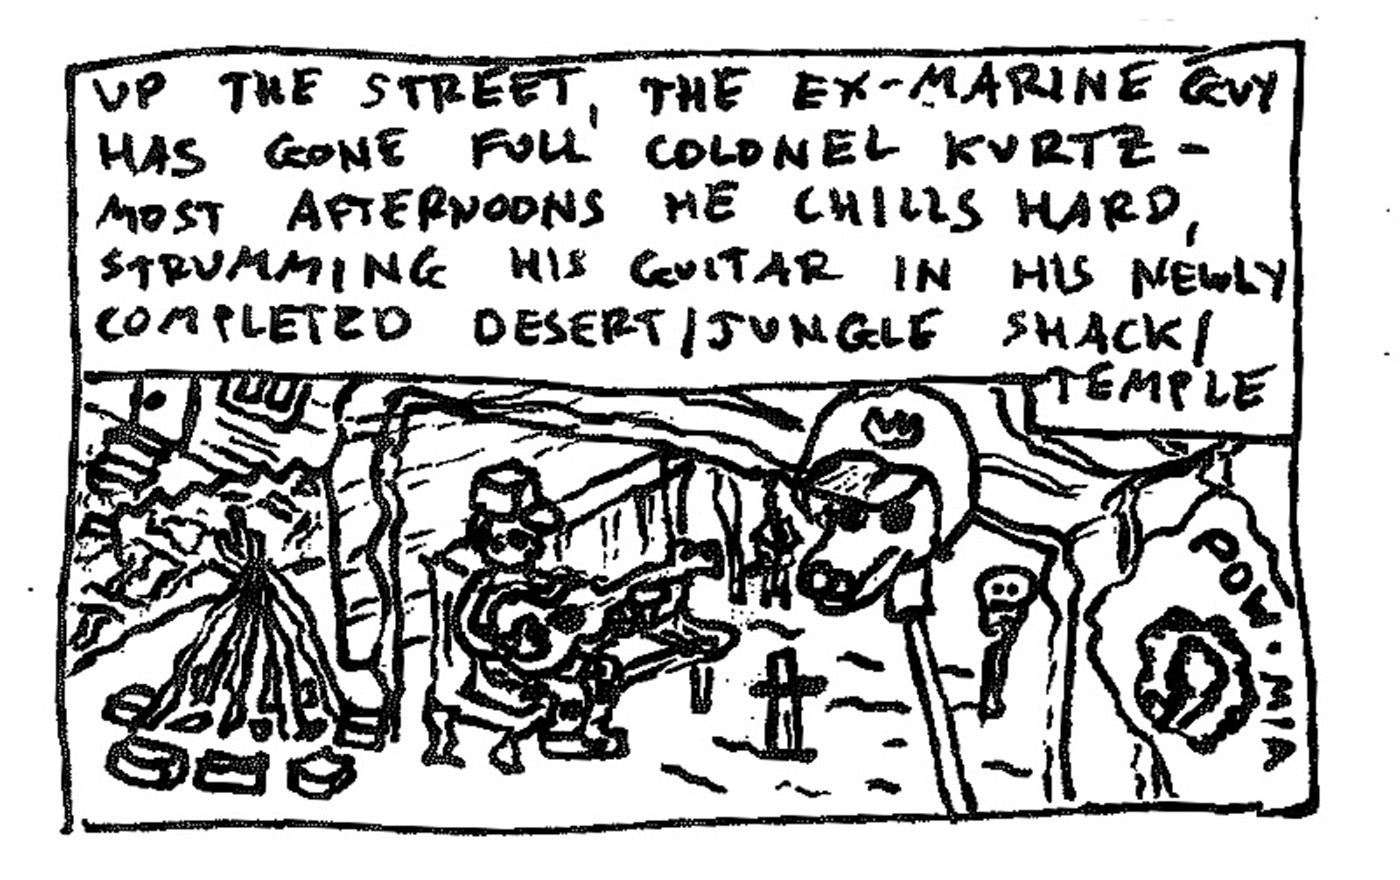 UP THE STREET, THE EX-MARINE GUY
HAS GONE FULL COLONEL KURTZ -
MOST AFTERNOONS HE CHILLS HARD,
STRUMMING HIS GUITAR IN HIS NEWLY
COMPLETED DESERT/JUNGLE SHACK/
TEMPLE
POW·MIA